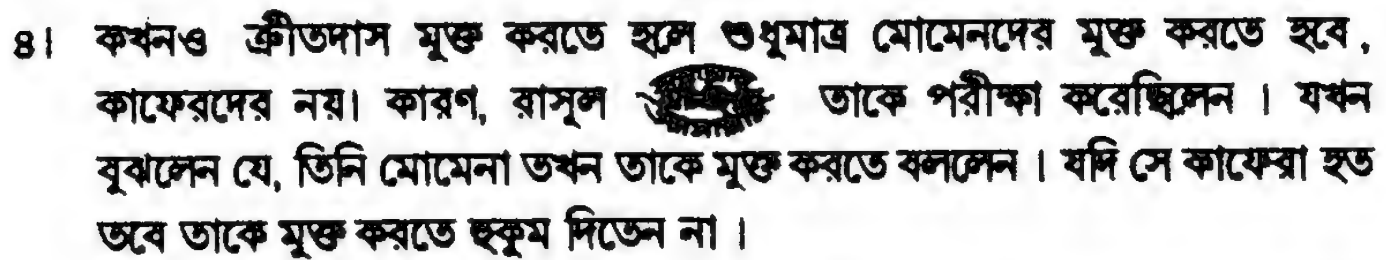 ৪। কখনও ক্রীতদাস মুক্ত করতে হলে শুধুমাত্র মোমেনদের মুক্ত করতে হবে,
কাফেরদের নয়। কারণ, রাসূল তাকে পরীক্ষা করেছিলেন । যখন
বুঝলেন যে, তিনি মোমেনা তখন তাকে মুক্ত করতে বললেন । যদি সে কাফেরা হত
তবে তাকে মুক্ত করতে হুকুম দিতেন না ।